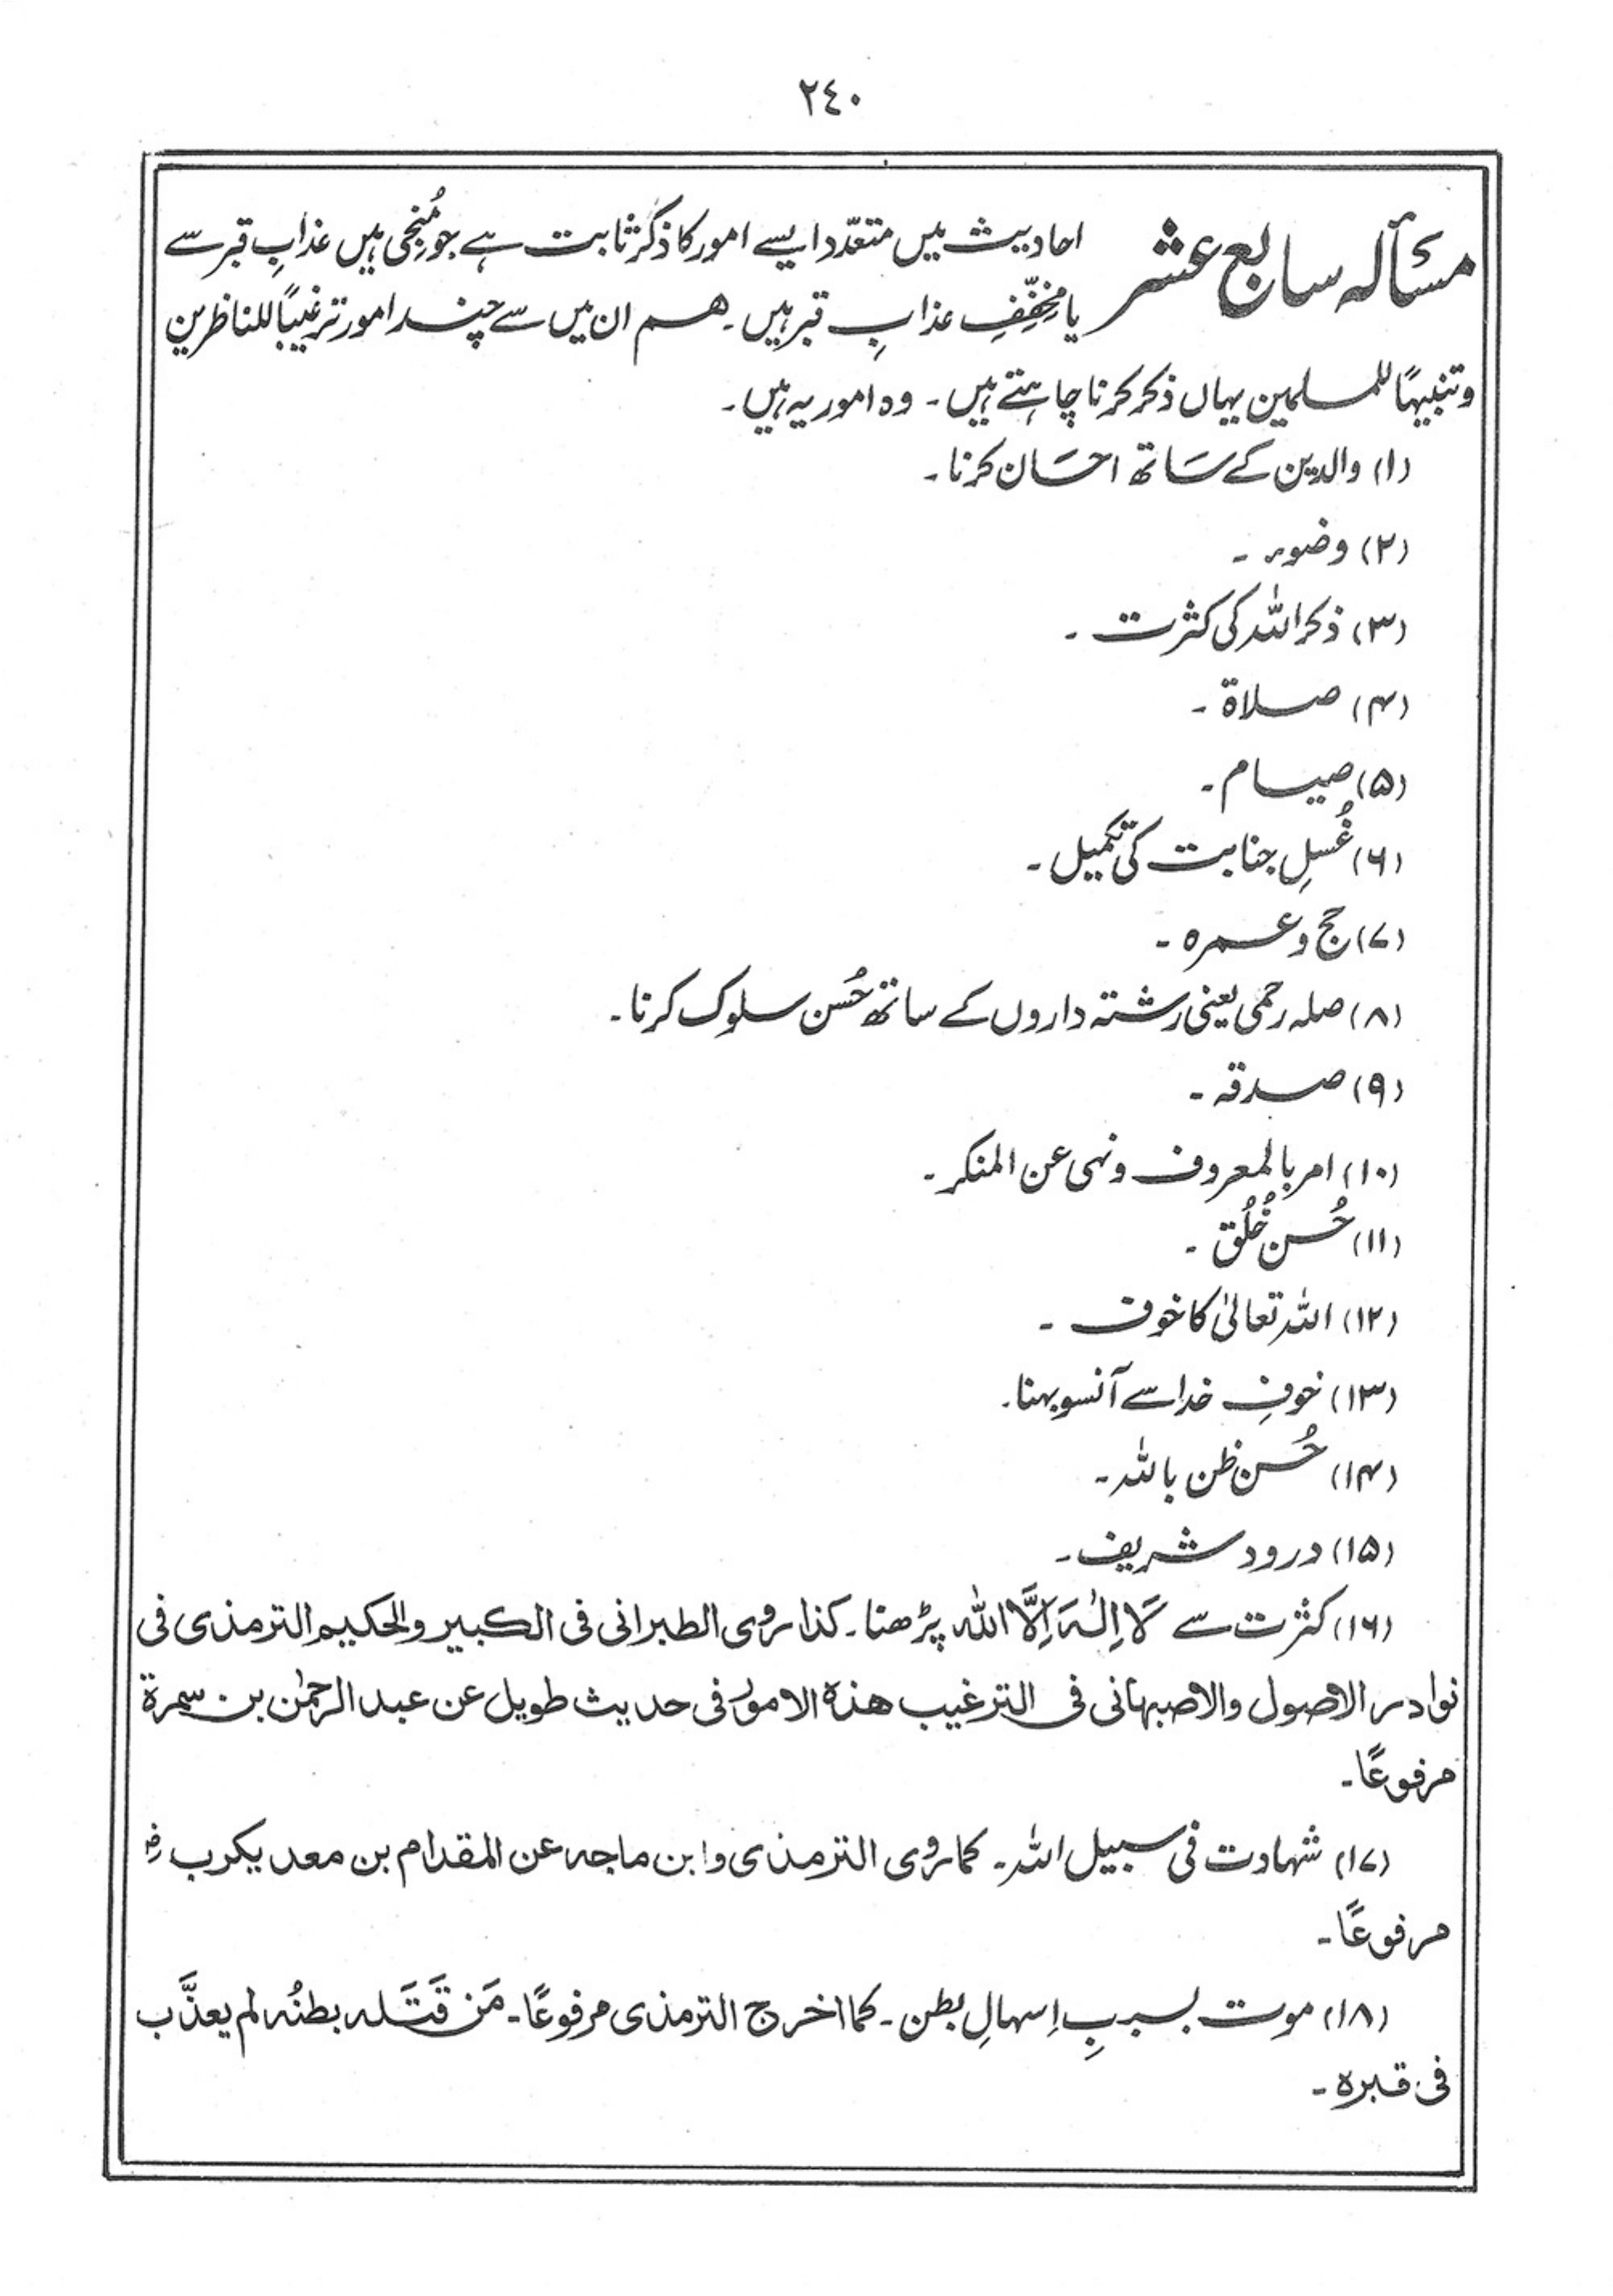 ٢٤٠
مسألہ سابع عشر احادیث میں متعدّد ایسے امور کا ذکر ثابت ہے جو مُنجی ہیں عذابِ قبر سے
یا مخفِّفِ عذابِ قبر ہیں۔ ہم ان میں سے چند امور ترغیبًا للناظرین
وتنبیہًا للمسلمین یہاں ذکر کرنا چاہتے ہیں۔ وہ امور یہ ہیں۔
(۱) والدین کے سَاتھ احسَان کرنا۔
(۲) وضوء۔
(۳) ذکر اللہ کی کثرت۔
(۴) صلاة۔
(۵) صیام۔
(۶) غُسلِ جنابت کی تکمیل۔
(۷) حج وعمرہ۔
(۸) صلہ رحمی یعنی رشتہ داروں کے ساتھ حُسن سلوک کرنا۔
(۹) صدقہ۔
(۱۰) امر بالمعروف ونہی عن المنکر۔
(۱۱) حُسن خُلُق۔
(۱۲) اللہ تعالیٰ کا خوف۔
(۱۳) خوفِ خدا سے آنسو بہنا۔
(۱۴) حُسن ظن باللہ۔
(۱۵) درود شریف۔
(۱۶) کثرت سے لَا اِلٰہَ اِلَّا اللہ پڑھنا۔ کذا روی الطبرانی فی الکبیر والحکیم الترمذی فی
نوادر الاصول والاصبہانی فی الترغیب ھذہ الامور فی حدیث طویل عن عبد الرحمٰن بن سمرة
مرفوعًا۔
(۱۷) شہادت فی سبیل اللہ۔ کما روی الترمذی وابن ماجہ عن المقدام بن معدیکرب رض
مرفوعًا۔
(۱۸) موت بسببِ اِسہالِ بطن۔ کما اخرج الترمذی مرفوعًا۔ مَن قَتَلہ بطنُہ لم یعذَّب
فی قبرہ۔